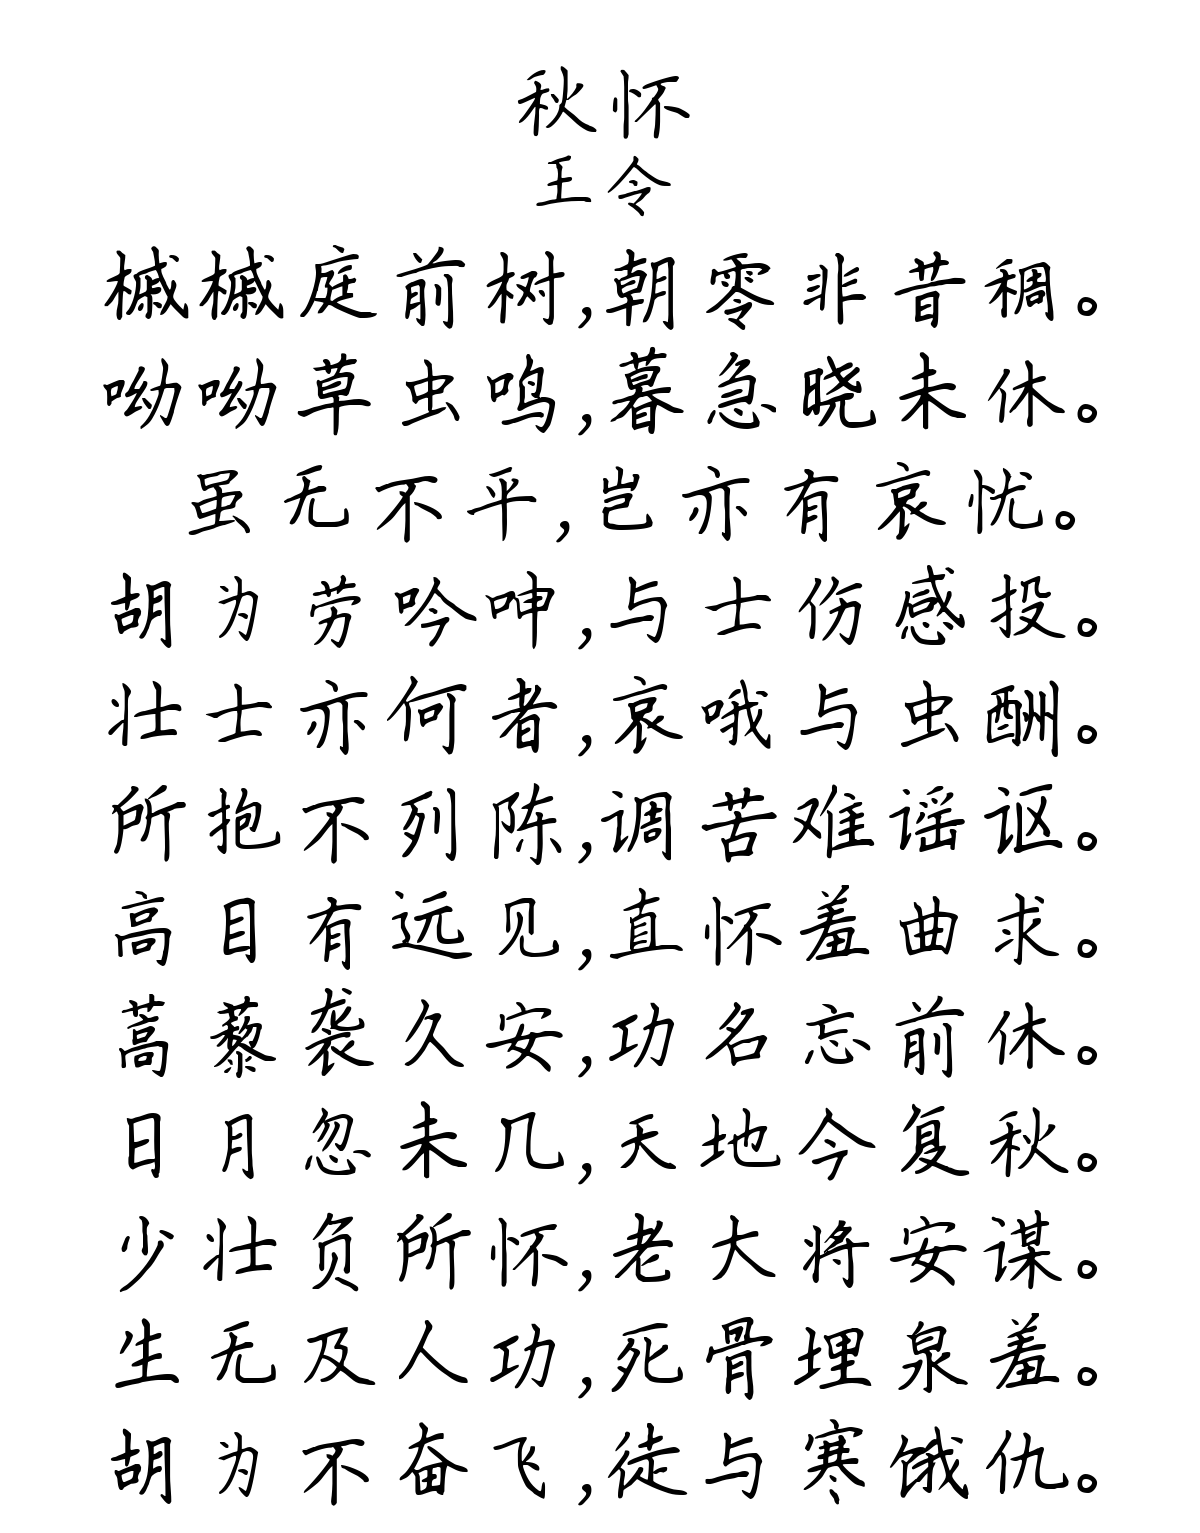 秋怀
王令
槭槭庭前树,朝零非昔稠。
呦呦草虫鸣,暮急晓未休。
虽无不平,岂亦有哀忧。
胡为劳吟呻,与士伤感投。
壮士亦何者,哀哦与虫酬。
所抱不列陈,调苦难谣讴。
高目有远见,直怀羞曲求。
蒿藜袭久安,功名忘前休。
日月忽未几,天地今复秋。
少壮负所怀,老大将安谋。
生无及人功,死骨埋泉羞。
胡为不奋飞,徒与寒饿仇。